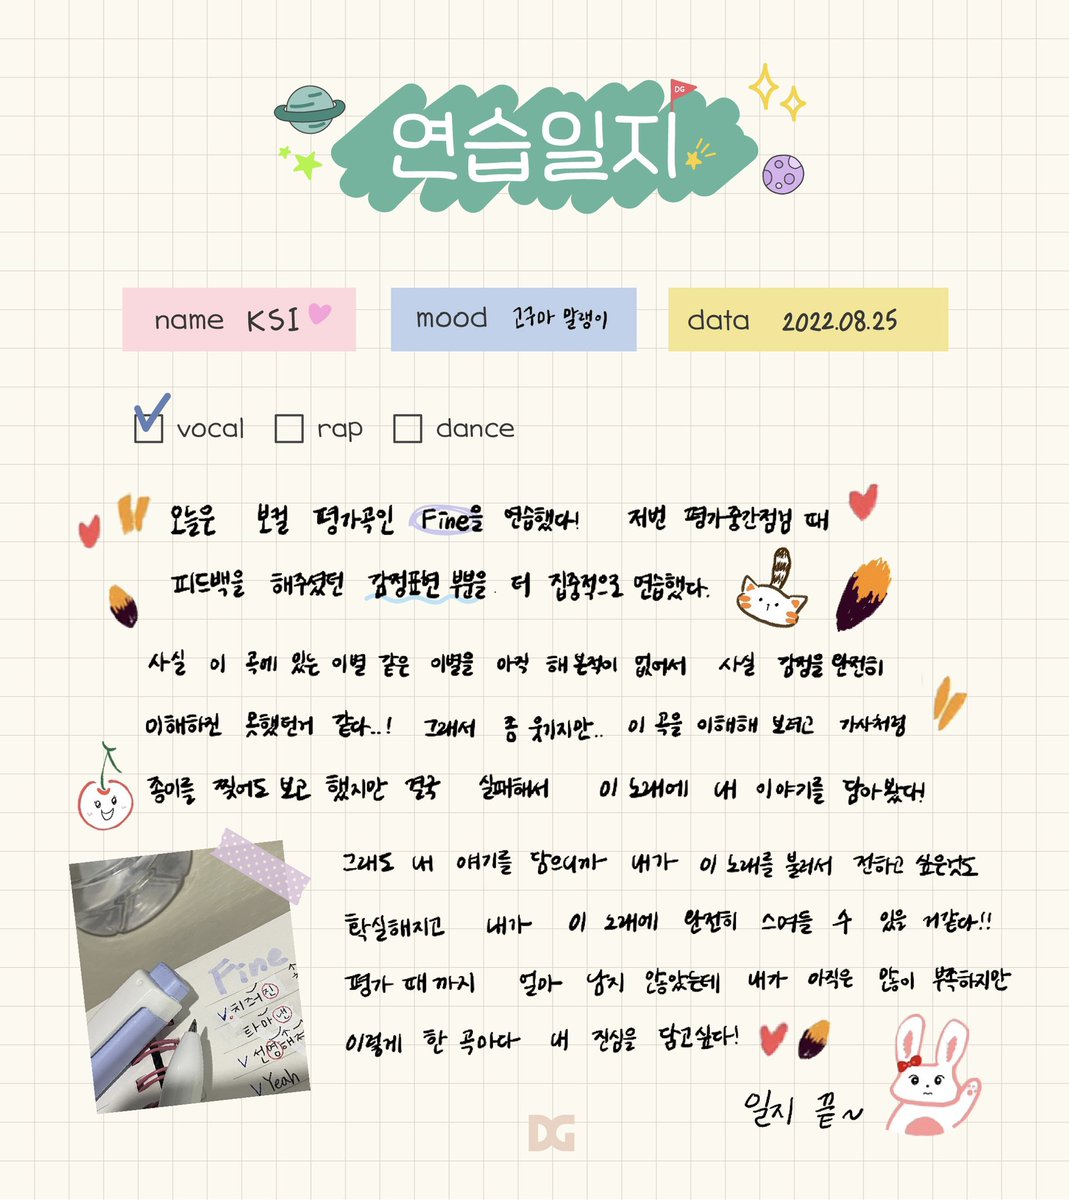 DG
연습일지
name KSI
mood 고구마 말랭이
data 2022.08.25
vocal rap dance
오늘은 보컬 평가곡인 Fine을 연습했다! 저번 평가중간점검 때
피드백을 해주셨던 감정표현 부분을 더 집중적으로 연습했다.
사실 이 곡에 있는 이별 같은 이별을 아직 해본적이 없어서 사실 감정을 완전히
이해하진 못했던거 같다..! 그래서 좀 웃기지만.. 이 곡을 이해해 보려고 가사처럼
종이를 찢어도 보고 했지만 결국 실패해서 이 노래에 내 이야기를 담아봤다!
그래도 내 얘기를 담으니까 내가 이 노래를 불러서 전하고 싶은것도
확실해지고 내가 이 노래에 완전히 스며들 수 있을 거같다!!
평가 때까지 얼마 남지 않았는데 내가 아직은 많이 부족하지만
이렇게 한 곡마다 내 진심을 담고싶다!
Fine
V.지워진
하마낸
V 선명해져
V Yeah
일지 끝~
DG